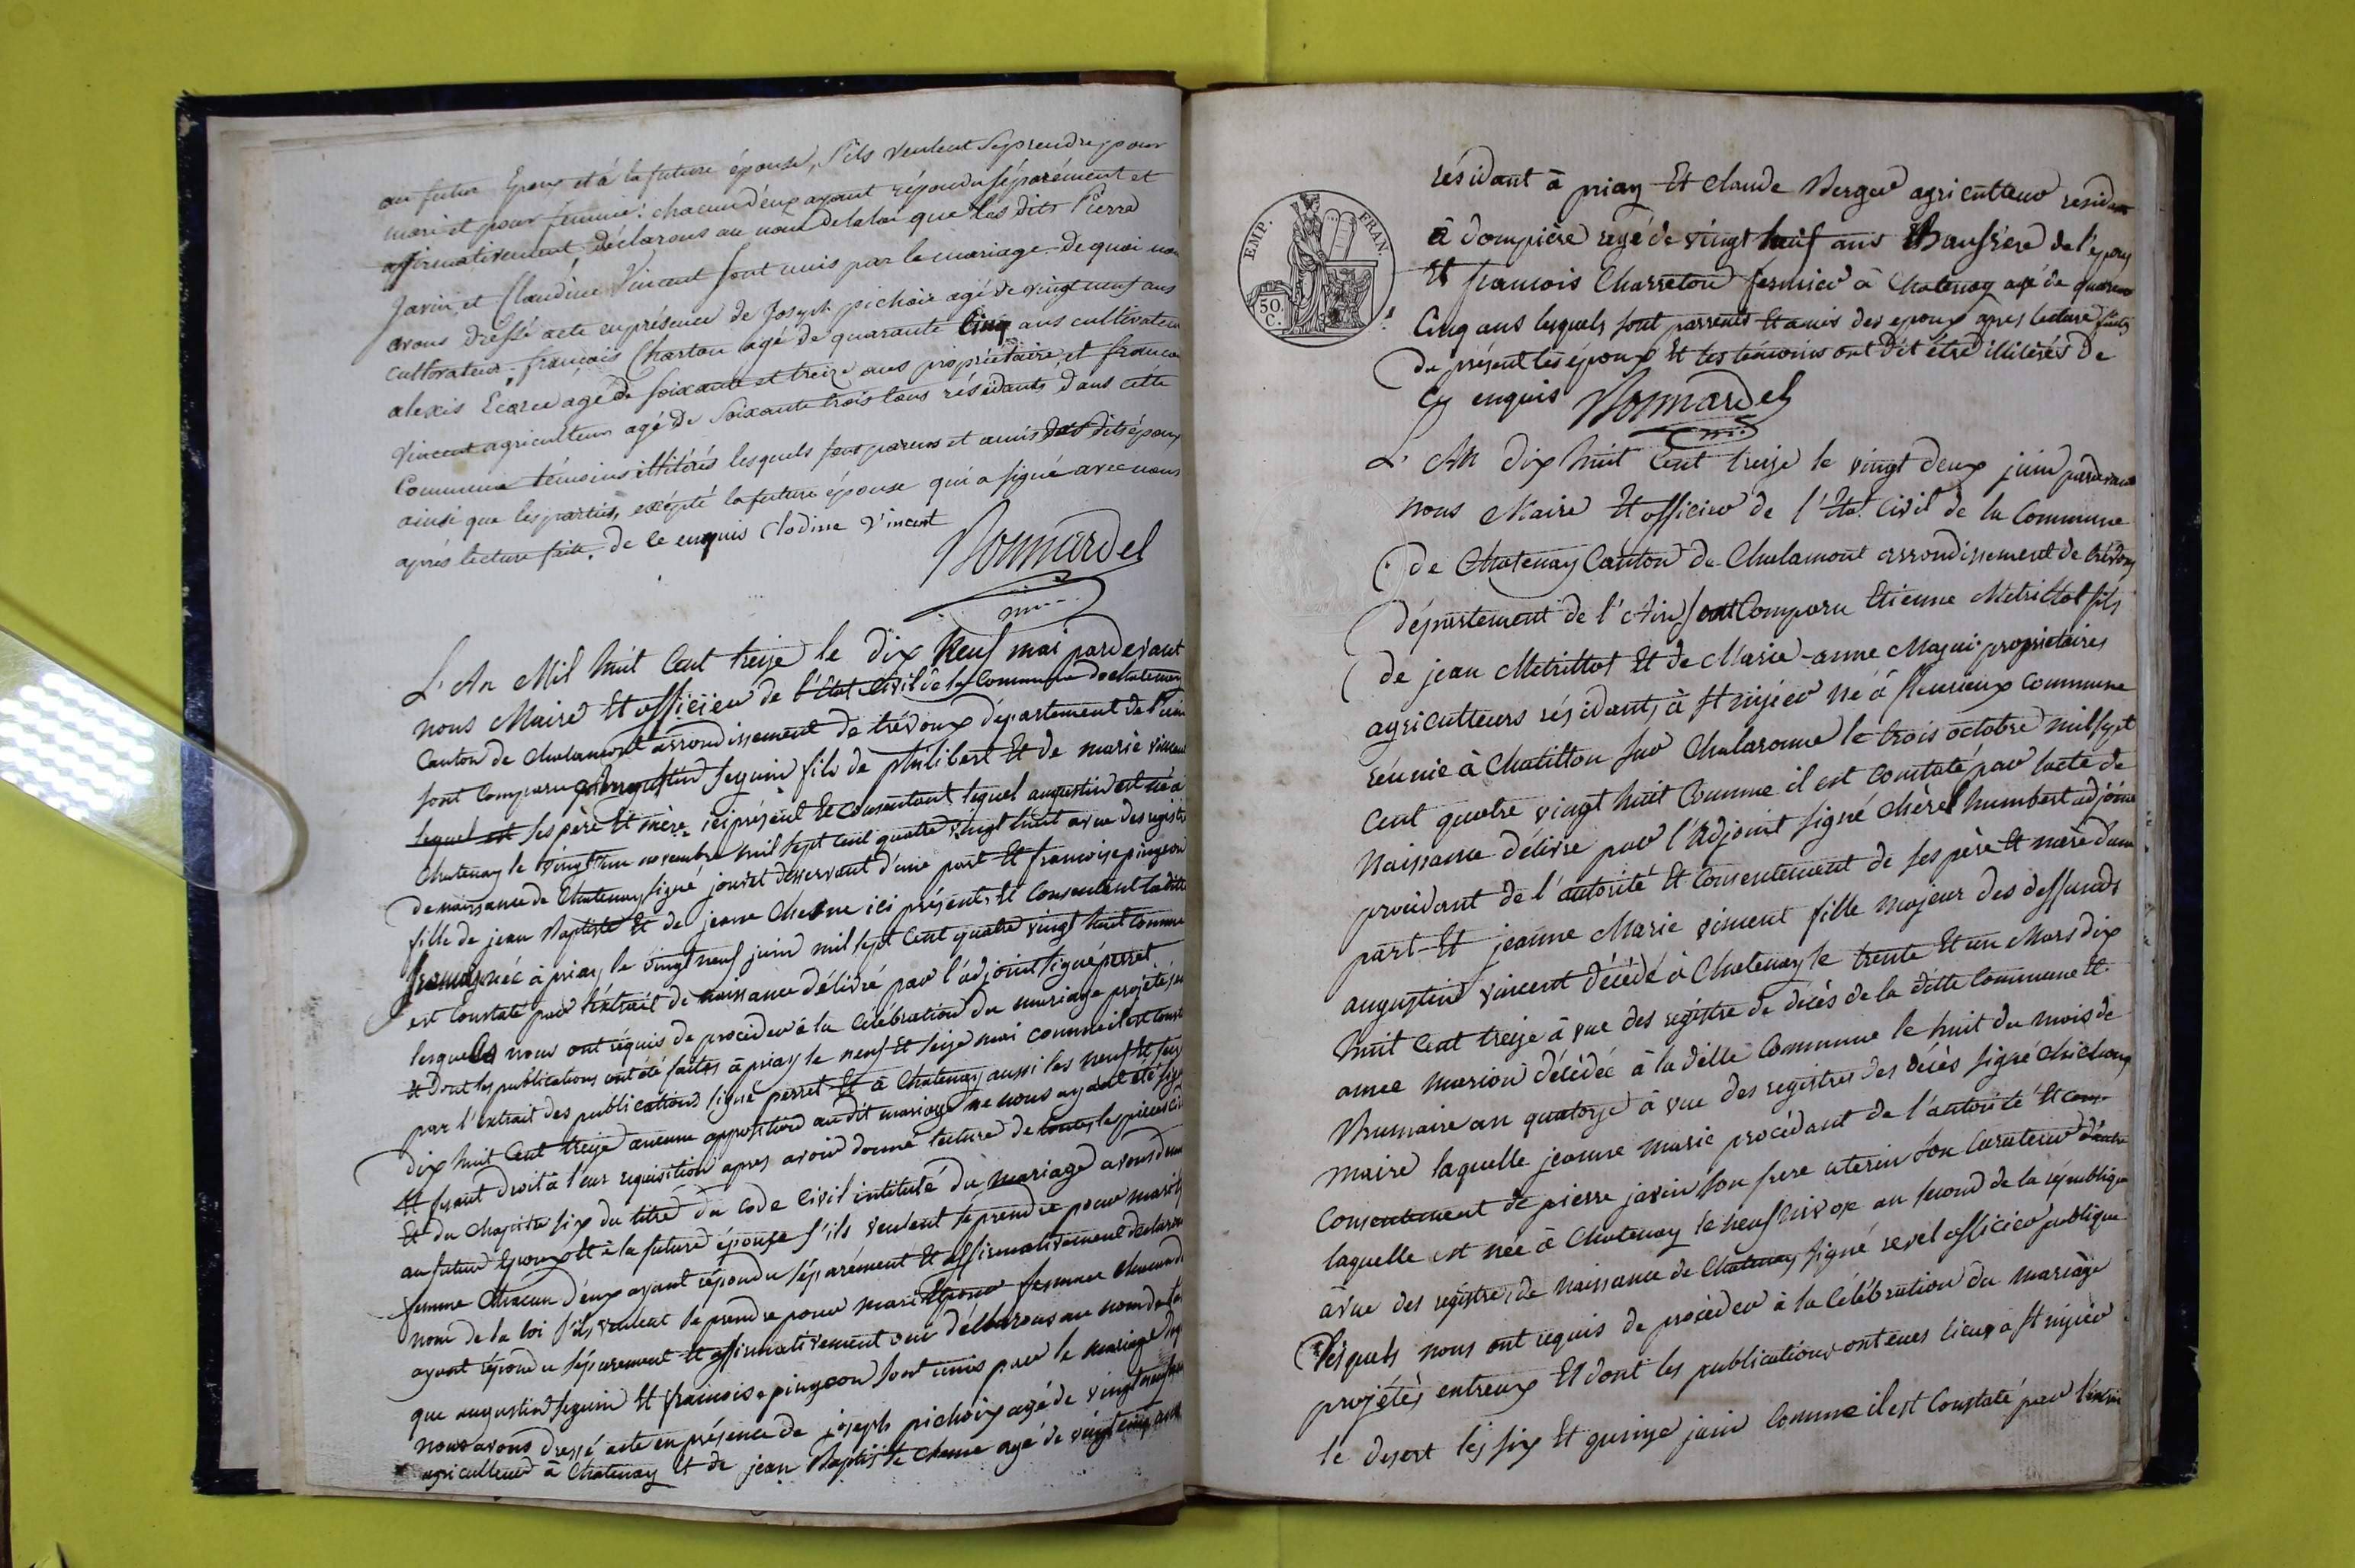 au futur Epoux et à la future épouse, s'ils veulent se prendre pour
mari et pour femme: chacun d'eux ayant répondu séparément et
affirmativement, déclarons au nom de la loi que les dits Pierre
Javin, et Claudine Vincent sont unis par le mariage. De quoi nous
avons dressé acte en présence de Joseph pichoix agé de vingt neuf ans
cultivateur, françois Charton agé de quarante cinq ans cultivateur
alexis Ecorce agé de soixante et treize ans propriétaire et francois
Vincent agriculteur agé de soixante trois tous résidants dans cette
Commune témoins illitérés lesquels sont parens et amis des dits époux
ainsi que les parties, excépté la future épouse qui a signé avec nous
après lecture faite. de ce enquis Clodine Vincent
Bonnardel
L'An Mil huit Cent treize le dix Neuf mai pardevant
nous Maire Et officier de l'état Civil de la Commune de chatenay
Canton de chalamont arrondissement de trévoux département de l'ain
sont comparu augustin seguin fils de philibert Et de marie vincent
lequel est ses père Et mère ici présent Et consentant lequel augustin est né à
Chatenay le vingt un novembre mil sept cent quatre vingt huit a vue des registre
de naissance de Chatenay signé jouvet desservant d'une part Et francoise pingeon
fille de jean Baptiste Et de jeane Chesne ici présents Et Consentent la ditte
francoise née à priay le vingt neuf juin mil sept Cent quatre vingt huit comme
est Constaté par l'extrait de naissance délivré par l'adjoint signé perret
lesquels nous ont réquis de procéder à la Célébration du mariage projété
Et dont les publications ont été faittes à priay le neuf Et seize mai comme il est const
par l'extrait des publications signé perret Et à Chatenay aussi les neuf Et seize
dix huit Cent treize aucune opposition au dit mariage ne nous ayant été
Et fesant droit à leur requisition apres avoir donné lecture de toutes les pièces
Et du Chapitre six du titre du Code Civil intitulé du mariage avons
au futur Epoux Et à la future épouse s'ils veulent se prendre pour mari
femme Chacun d'eux ayant répondu séparément Et affirmativement declarons
nom de la loi s'ils veulent se prendre pour mari Et pour femme chacun
ayant répondu séparement Et affirmativement oui déclarons au nom de la
que augustin seguin Et francoise pingeon sont unis par le mariage
nous avons dressé acte en présence de joseph pichoix agé de vingt neuf
agriculteur à Chatenay Et de jean Baptiste Chesne agé de vingt cinq ans
EMP. FRAN.
50 C.
résidant à priay Et Claude Berger agriculteur résidant
à dompière agé de vingt huit ans Beaufrère de l'époux
Et francois Charreton fermier à Chatenay agé de quarante
Cinq ans lesquels sont parrents Et amis des epoux apres lecture faite
du présent les époux Et les témoins ont dit être illitérés de
Ce enquis Bonnardel
L'An dix huit Cent treize le vingt deux juin pardevant
nous Maire Et officier de l'Etat Civil de la Commune
de Chatenay Canton de Chalamont arrondissement de trévoux
département de l'Ain sont Comparu Etienne Metrillot fils
de jean Metrillot Et de Marie-anne Magui propriétaires
agriculteurs résidants à st nizier né à fleurieux Commune
réunie à Chatillon sur Chalaronne le trois octobre mil sept
Cent quatre vingt huit Comme il est Constaté par l'acte de
Naissance délivré par l'Adjoint signé Chèrel humbert adjoint
procédant de l'autorité Et Consentement de ses père Et mère d'une
part Et jeanne Marie vincent fille Majeur des deffunds
augustin vincent décédé à Chatenay le trente Et un Mars dix
huit Cent treize à vue des régistre de décès de la ditte Commune Et
anne marion décédée à la ditte Commune le huit du mois de
Brumaire an quatorze à vue des registres des décès signé
maire laquelle jeanne marie procédant de l'autorité Et con-
Consentement de pierre javin son frere uterin son Curateur d'autre
laquelle est née à Chatenay le neuf nivose an second de la république
à vue des régistres de naissance de Chatenay signé revel officier publique
lesquels nous ont requis de procèder à la Célébration du mariage
projétés entreux Et dont les publications ont eues lieux à st nizier
le desert les six Et quinze juin Comme il est Constaté par l'extrait